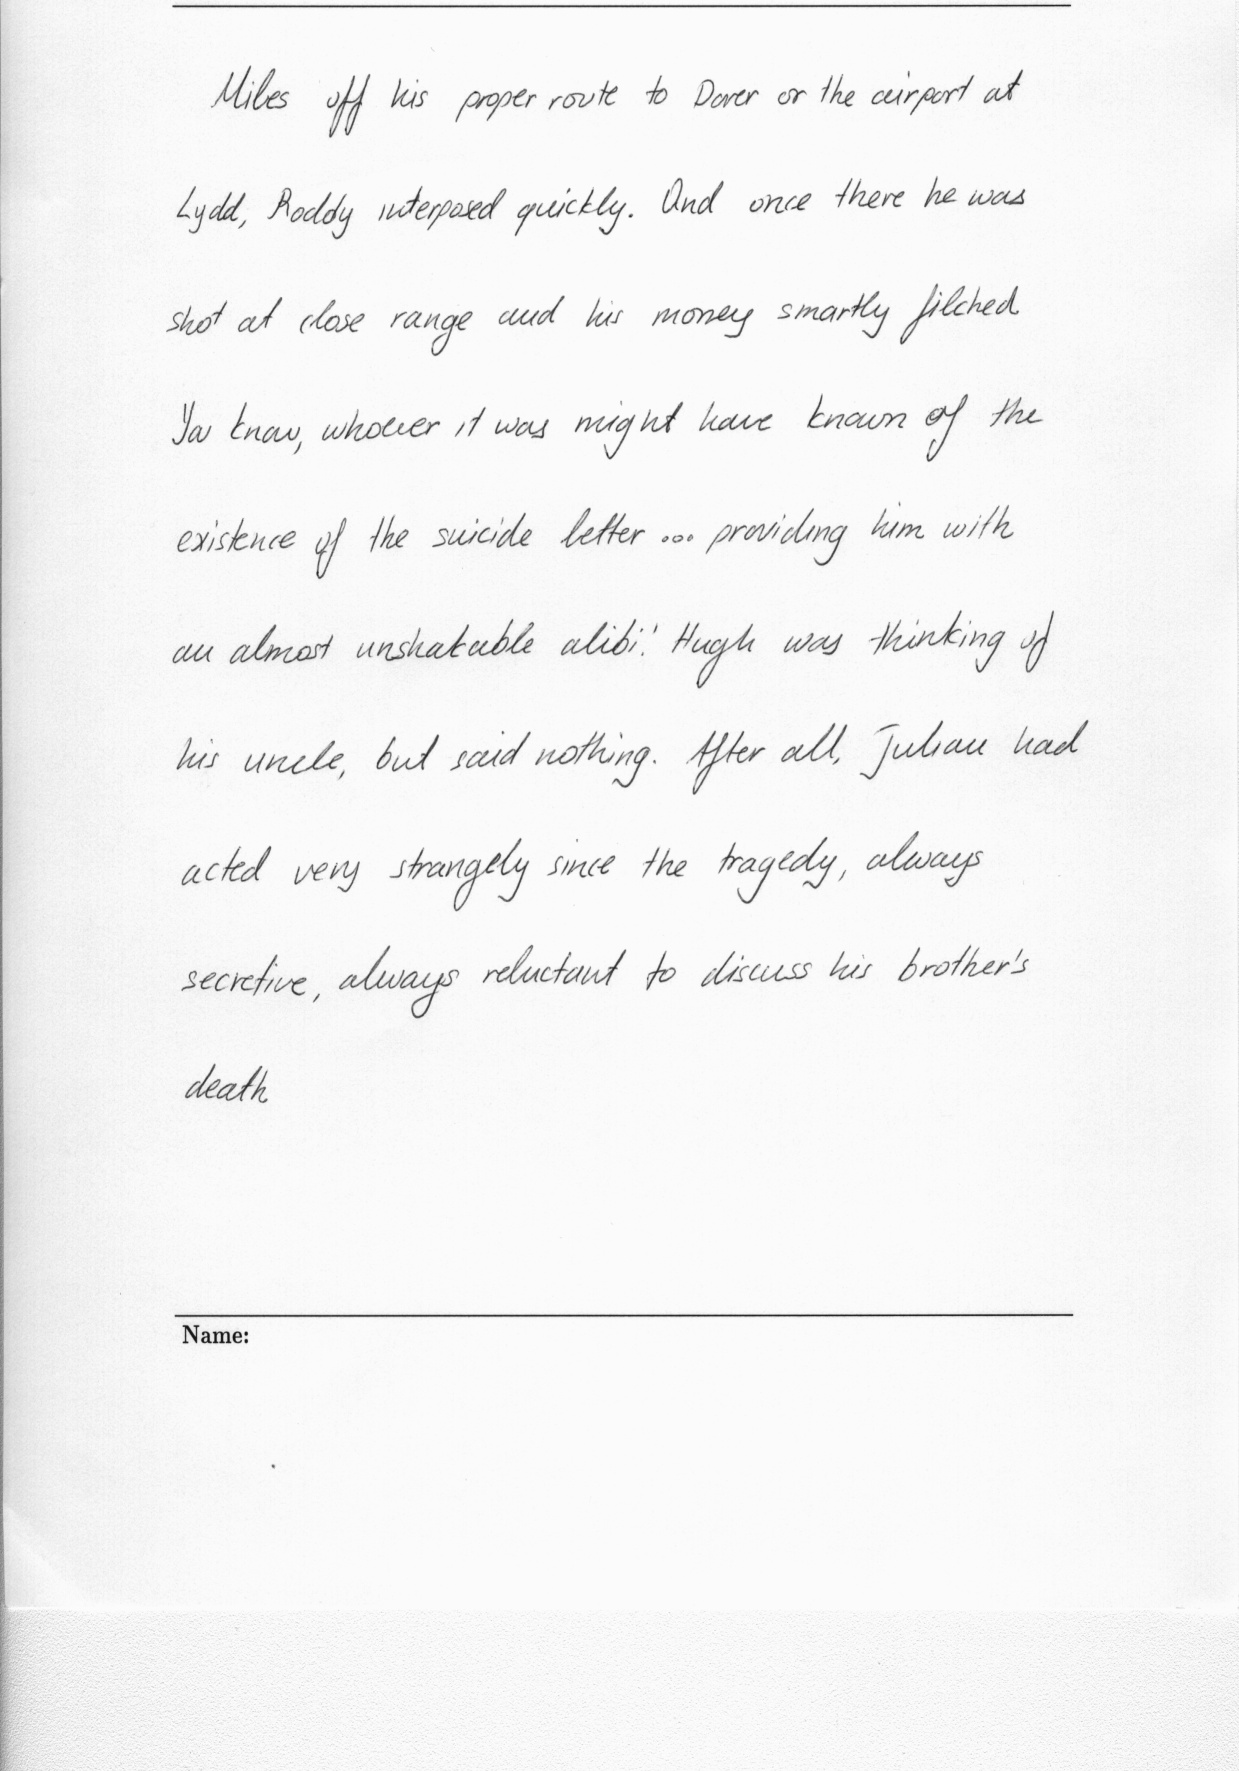 Miles off his proper route to Dover or the airport at
Lydd, Roddy interposed quickly. And once there he was
shot at close range and his money smartly filched
You know, whoever it was might have known of the
existence of the suicide letter ... providing him with
an almost unshakable alibi! Hugh was thinking of
his uncle, but said nothing. After all, Julian had
acted very strangely since the tragedy, always
secretive, always reluctant to discuss his brother's
death
Name: